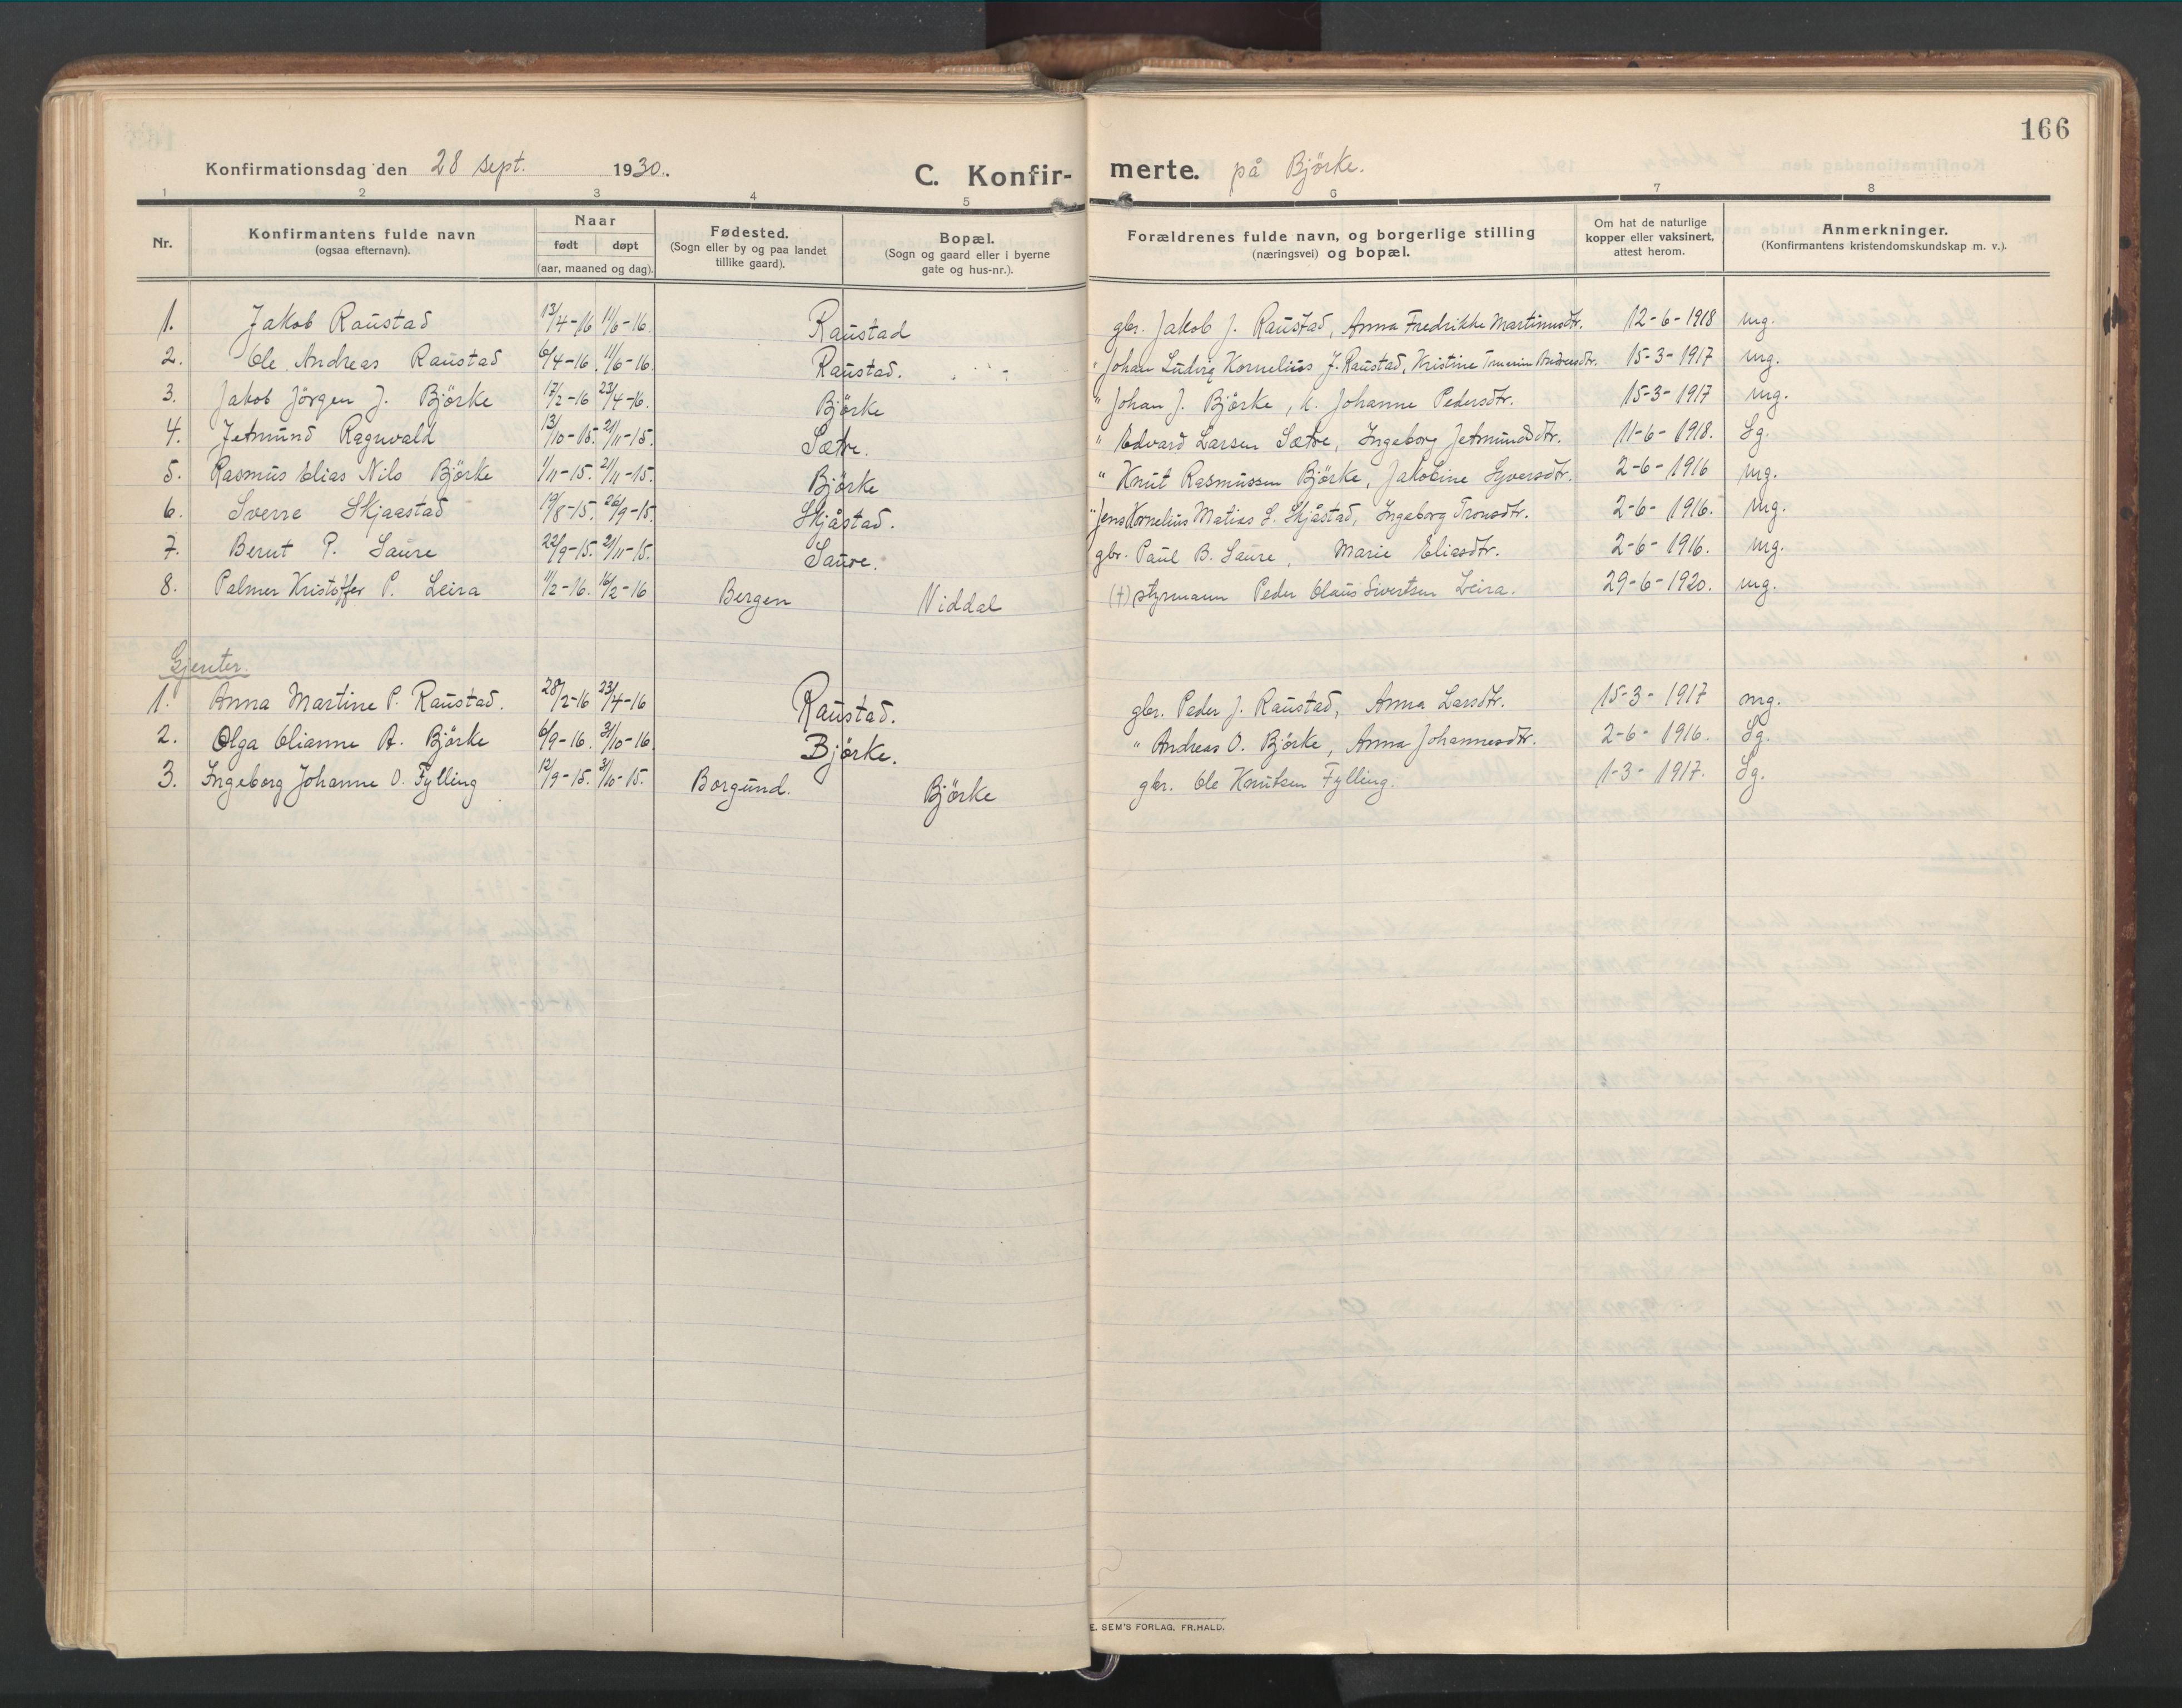 166
Konfirmationsdag den 28 sept. 1930. C. Konfirmerte. på Björke.
1 2 3 4 5 6 7 8
Nr. Konfirmantens fulde navn (ogsaa efternavn). Naar født døpt (aar, maaned og dag). Fødested. (Sogn eller by og paa landet tillike gaard). Bopæl. (Sogn og gaard eller i byerne gate og hus-nr.). Forældrenes fulde navn, og borgerlige stilling (næringsvei) og bopæl. Om hat de naturlige kopper eller vaksinert, attest herom. Anmerkninger. (Konfirmantens kristendomskundskap m. v.).
1. Jakob Raustad 13/4-16 11/6-16. Raustad gbr. Jakob J. Raustad, Anna Fredrikke Martinusdtr. 12-6-1918 mg.
2. Ole Andreas Raustad 6/4-16. 11/6-16. Raustad. " Johan Ludvig Kornelius J. Raustad, Kristine Andreasdtr. 15-3-1917 mg.
3. Jakob Jörgen J. Björke 17/2-16 23/4-16. Björke " Johan J. Björke, k. Johanne Pedersdtr. 15-3-1917 mg.
4. Jetmund Ragnvald 13/10-15. 21/11-15. Sætre. " Edvard Larsen Sætre, Ingeborg Jetmundsdtr. 11-6-1918. Sg.
5. Rasmus Elias Nils Björke 1/11-15. 21/11-15. Björke " Knut Rasmussen Björke, Jakobine Syversdtr. 2-6-1916 mg.
6. Sverre Skjaastad 19/8-15. 26/9-15. Skjåstad. " Jens Kornelius Matias S. Skjåstad, Ingeborg Tronsdtr. 2-6-1916. mg.
7. Bernt P. Saure 22/9-15. 21/11-15. Saure. gbr. Paul B. Saure, Marie Eliasdtr. 2-6-1916. mg.
8. Palmer Kristoffer P. Leira 11/2-16. 16/2-16 Bergen Viddal (†) styrmann Peder Olaus Sivertsen Leira. 29-6-1920. mg.
Gjenter.
1. Anna Martine P. Raustad. 28/2-16 23/4-16 Raustad. gbr. Peder J. Raustad, Anna Larsdtr. 15-3-1917 mg.
2. Olga Olianne A. Björke 6/9-16. 31/10-16. Björke. " Andreas O. Björke, Anna Johannesdtr. 2-6-1916. Sg.
3. Ingeborg Johanne O. Fylling 12/9-15. 31/10-15. Borgund. Björke gbr. Ole Knutsen Fylling. 1-3-1917. Sg.
E. SEM'S FORLAG, FR.HALD.